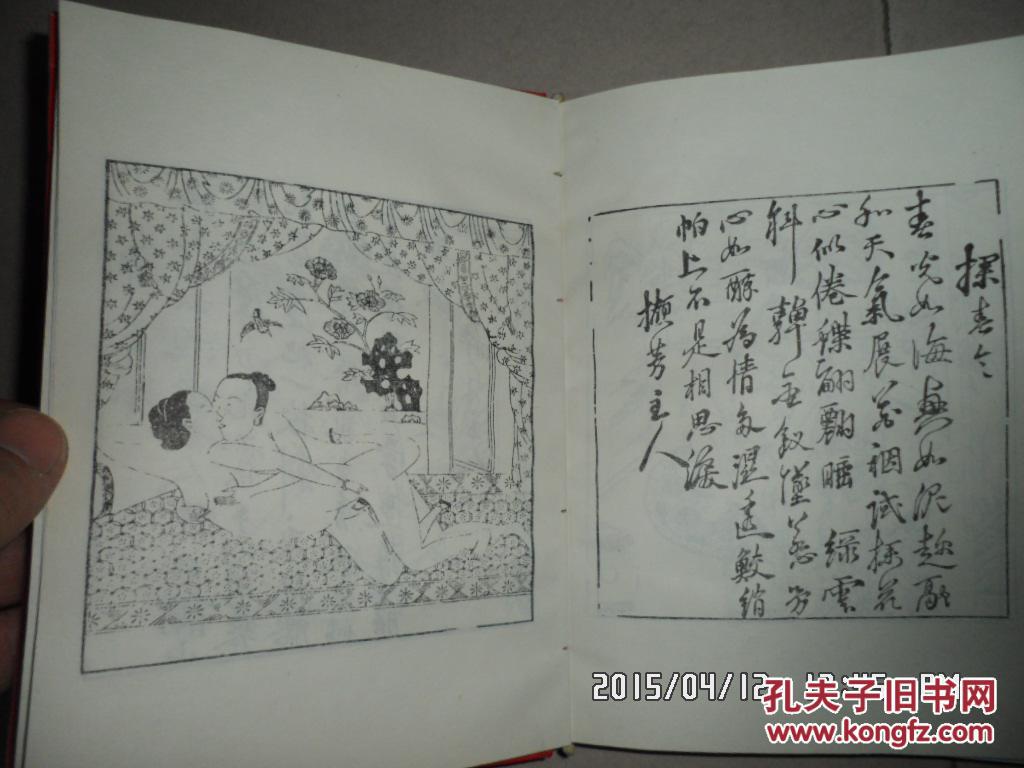 探春令
春光如海無如泥趁融
和天氣展花裀試採花
心似倦蝶翩翾睡 綠雲
斜嚲金釵墜
心如醉為情多濕透鮫綃
帕上不是相思淚
擷芳主人
2015/04/12
孔夫子旧书网
www.kongfz.com